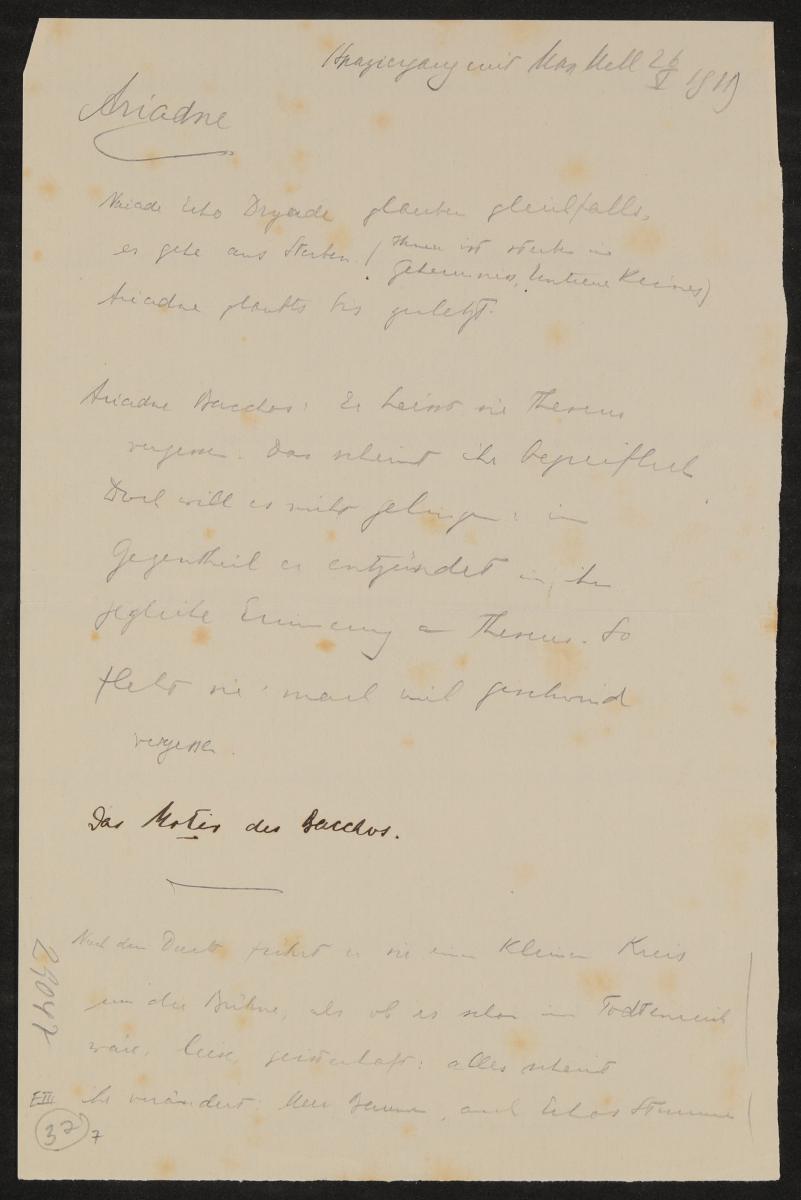 Spaziergang mit Max Mell 26 V 1919
Ariadne
Naiade Echo Dryade glauben gleichfalls,
es gehe ans Sterben. (Ihnen ist sterben ein
Geheimniss, Keines)
Ariadne glaubts bis zuletzt.
Ariadne Bacchos: Er heisst sie Theseus
vergessen. Das scheint ihr begreiflich
Doch will es nicht gelingen: im
Gegentheil es entzündet in ihr
jegliche Erinnerung an Theseus. So
fleht sie: mach mich geschwind
vergessen.
Das Motiv des Bacchos.
Nach dem Duett führt er sie einen kleinen Kreis
um die Bühne, als ob es schon im Todtenreich
wäre, leise, geisterhaft: alles scheint
ihr verändert. auch Echos Stimme
29047
E III
37
7